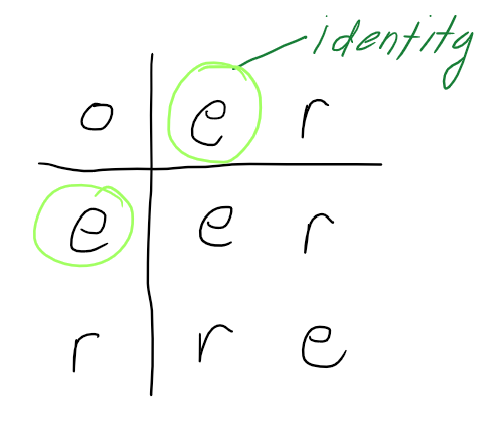 identity
o e r
e e r
r r e